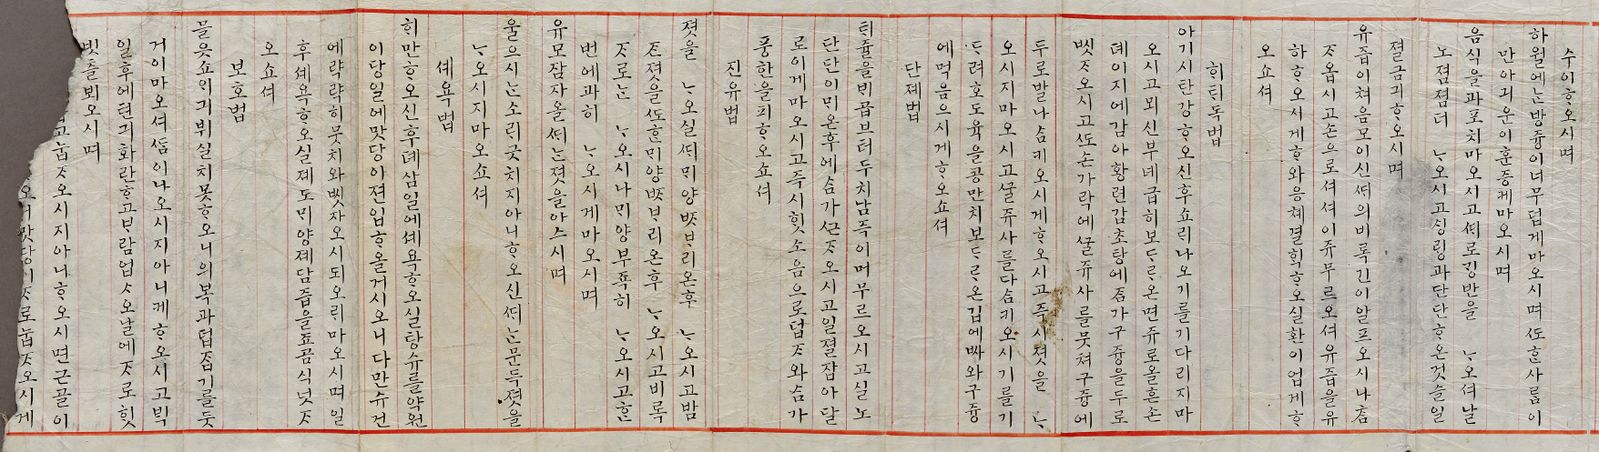 수이ᄒᆞ오시며
하월에는방즁이너무덥게마오시며ᄯᅩᄒᆞᆫ사ᄅᆞᆷ이
만아긔운이훈증케마오시며
음식을과포치마오시고셔로깅반을 ᄂᆞ오셔날
노졈졈더 ᄂᆞ오시고싱링과단단ᄒᆞ온것슬일
졀금긔ᄒᆞ오시며
유즙이쳐음모이신ᄯᅢ의비록긴이알프오시나ᄎᆞᆷ
ᄌᆞ옵시고손으로셔셔이쥬무르오셔유즙을유
하ᄒᆞ오시게ᄒᆞ와응쳬결ᄒᆡᆨᄒᆞ오실환이업게ᄒᆞ
오쇼셔
ᄒᆡᄐᆡ독법
아기시탄강ᄒᆞ오신후쇼ᄅᆡ나오기를기다리지마
오시고뫼신부녜급히보ᄃᆞ라온면쥬로올흔손
뎨이지에감아황련감초탕에ᄌᆞᆷ가구즁을두로
ᄡᅵᆺᄌᆞ오시고ᄯᅩ손가락에ᄭᅮᆯ쥬사를뭇쳐구즁에
두로발나ᄉᆞᆷ키오시게ᄒᆞ오시고즉시졋을 ᄂᆞ
오시지마오시고ᄭᅮᆯ쥬사를다ᄉᆞᆷ키오시기를기
ᄃᆞ려호도육을콩만치보ᄃᆞ라온깁에ᄡᅡ와구즁
에먹음으시게ᄒᆞ오쇼셔
단졔법
ᄐᆡ쥴을ᄇᆡᄭᅩᆸ브터두치남즉이머무르오시고실노
단단이ᄆᆡ온후에ᄉᆞᆷ가ᄭᅳᆫᄌᆞ오시고일졀잡아달
로이게마오시고즉시ᄒᆡᆺ소음으로덥ᄌᆞ와ᄉᆞᆷ가
풍한을피ᄒᆞ오쇼셔
진유법
졋을 ᄂᆞ오실ᄯᅢᄆᆡ양ᄧᆞᆺ보ᄅᆡ온후 ᄂᆞ오시고밤
ᄌᆞᆫ졋을ᄯᅩᄒᆞᆫᄆᆡ양ᄧᆞᆺᄇᆞ리온후 ᄂᆞ오시고비록
ᄌᆞ로ᄂᆞᆫ ᄂᆞ오시나ᄆᆡ양부죡히 ᄂᆞ오시고ᄒᆞᆫ
번에과히 ᄂᆞ오시게마오시며
유모잠자올ᄯᅢᄂᆞᆫ졋을아스시며
울으시ᄂᆞᆫ소ᄅᆡ긋치지아니ᄒᆞ오신ᄯᅢᄂᆞᆫ문득졋을
ᄂᆞ오시지마오쇼셔
셰욕법
ᄒᆡ만ᄒᆞ오신후뎨삼일에셰욕ᄒᆞ오실탕슈를약원
이당일에맛당이젼입ᄒᆞ올거시오니다만슈건
에략략히뭇치와ᄡᅵᆺ자오시되오ᄅᆡ마오시며일
후셰욕ᄒᆞ오실졔도ᄆᆡ양졔담즙을죠곰식넛ᄌᆞ
오쇼셔
보호법
믈읏쇼ᄋᆡ긔뷔실치못ᄒᆞ오니의복과덥ᄌᆞᆸ기를듯
거이마오셔ᄯᆞᆷ이나오시지아니케ᄒᆞ오시고ᄇᆡᆨ
일후에텬긔화란ᄒᆞ고ᄇᆞ람업ᄉᆞ오날에ᄌᆞ로ᄒᆡᆺ
빗츨뵈오시며
눕ᄌᆞ오시지아니ᄒᆞ오시면근골이
맛당이ᄌᆞ로눕ᄌᆞ오시게